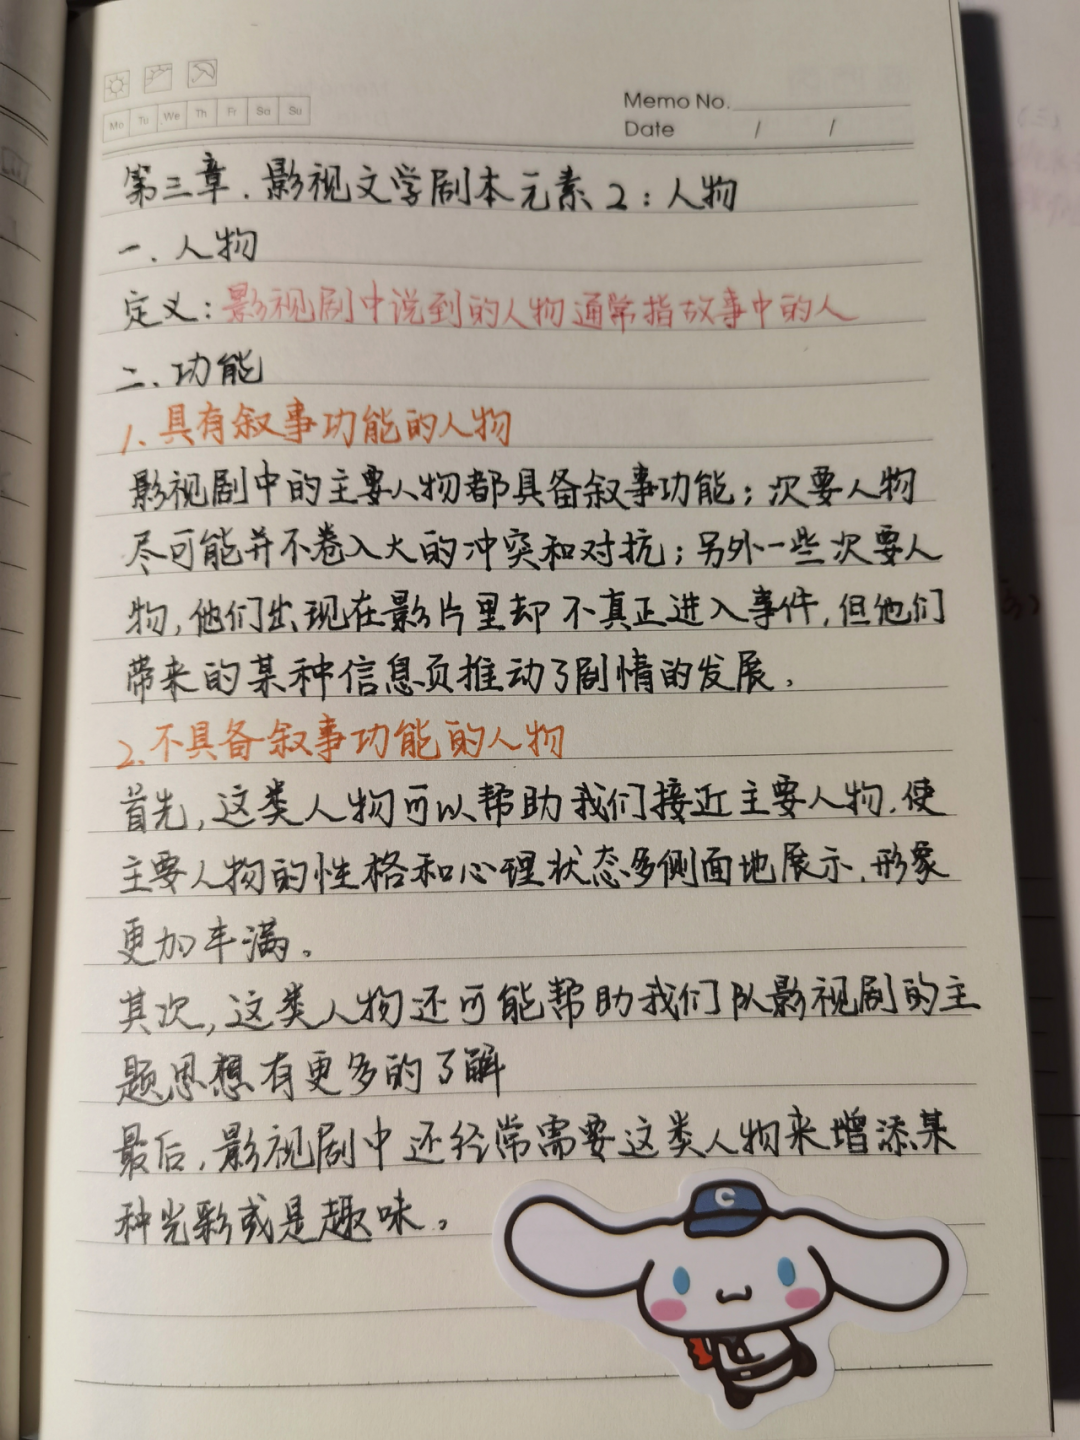 Mo Tu We Th Fr Sa Su
Memo No.
Date / /
第三章.影视文学剧本元素2:人物
一、人物
定义:影视剧中说到的人物通常指故事中的人
二、功能
1、具有叙事功能的人物
影视剧中的主要人物都具备叙事功能;次要人物
尽可能并不卷入大的冲突和对抗;另外一些次要人
物,他们出现在影片里却不真正进入事件,但他们
带来的某种信息页推动了剧情的发展。
2、不具备叙事功能的人物
首先,这类人物可以帮助我们接近主要人物,使
主要人物的性格和心理状态多侧面地展示,形象
更加丰满。
其次,这类人物还可能帮助我们队影视剧的主
题思想有更多的了解
最后,影视剧中还经常需要这类人物来增添某
种光彩或是趣味。
C